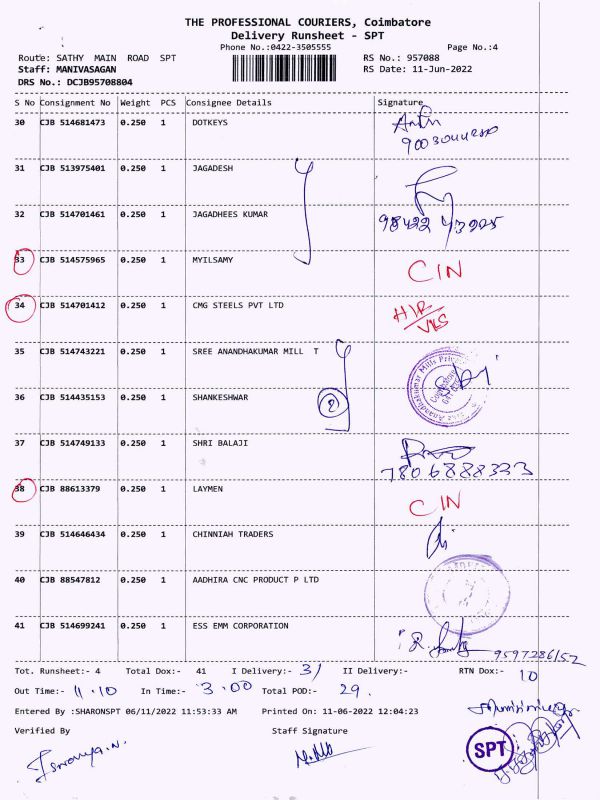 THE PROFESSIONAL COURIERS, Coimbatore
Delivery Runsheet - SPT
Phone No.:0422-3505555 Page No.:4
Route: SATHY MAIN ROAD SPT RS No.: 957088
Staff: MANIVASAGAN RS Date: 11-Jun-2022
DRS No.: DCJB95708804
S No Consignment No Weight PCS Consignee Details Signature
30 CJB 514681473 0.250 1 DOTKEYS
31 CJB 513975401 0.250 1 JAGADESH
32 CJB 514701461 0.250 1 JAGADHEES KUMAR
33 CJB 514575965 0.250 1 MYILSAMY CIN
34 CJB 514701412 0.250 1 CMG STEELS PVT LTD
35 CJB 514743221 0.250 1 SREE ANANDHAKUMAR MILL T
36 CJB 514435153 0.250 1 SHANKESHWAR 2
37 CJB 514749133 0.250 1 SHRI BALAJI
7806888333
38 CJB 88613379 0.250 1 LAYMEN CIN
39 CJB 514646434 0.250 1 CHINNIAH TRADERS
40 CJB 88547812 0.250 1 AADHIRA CNC PRODUCT P LTD
41 CJB 514699241 0.250 1 ESS EMM CORPORATION
9597286152
Tot. Runsheet:- 4 Total Dox:- 41 I Delivery:- 31 II Delivery:- RTN Dox:- 10
Out Time:- 11.10 In Time:- 3.00 Total POD:- 29.
Entered By :SHARONSPT 06/11/2022 11:53:33 AM Printed On: 11-06-2022 12:04:23
Verified By Staff Signature
SPT